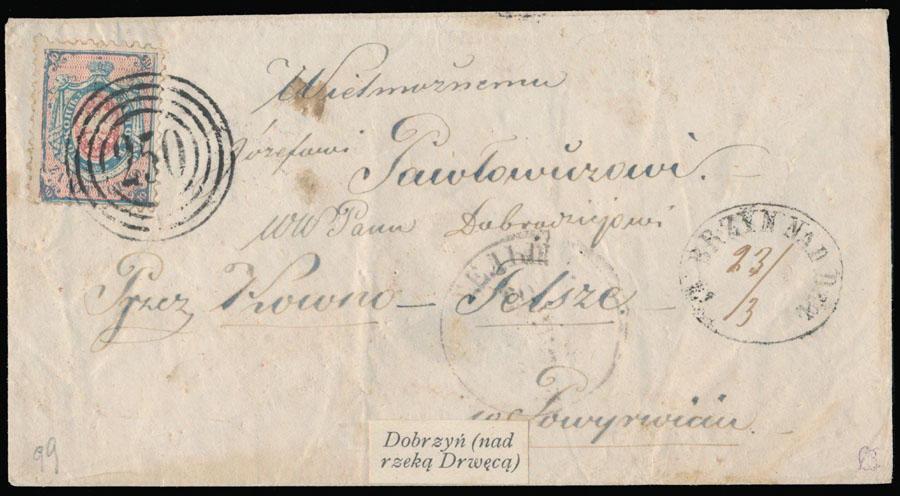 Wielmożnemu
Józefowi
Pawłowiczowi.
WW Panu Dobrodziejowi
Przez Kowno – Telsze
w
250
BRZYŃ NAD
23/3
Dobrzyń (nad
rzeką Drwęcą)
99